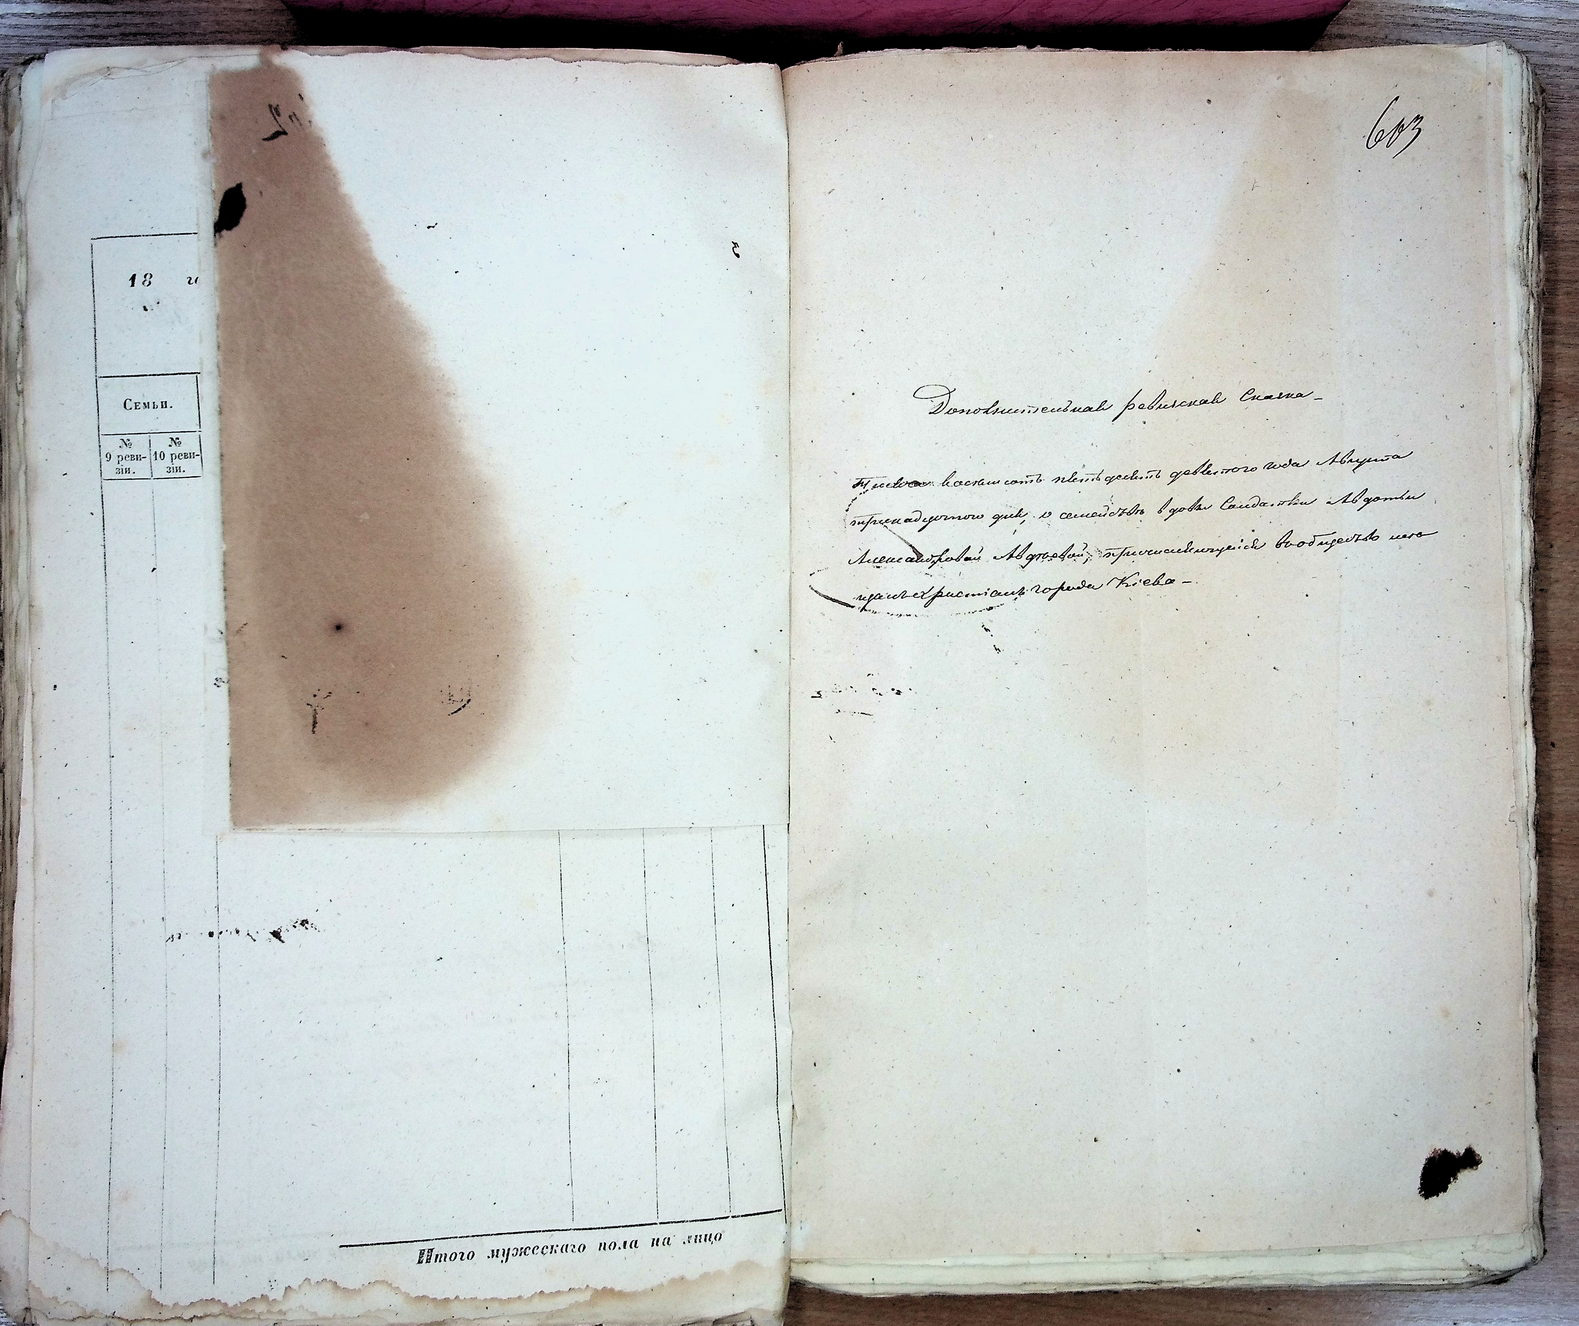 18 г
Семьи.
№ №
9 реви- 10 реви-
зіи. зіи.
Итого мужескаго пола на лицо
603
Дополнительная ревизская Сказка
Тысяча восемьсотъ пятьдесятъ девятого года Августа
тринадцатого дня, о семействѣ вдовы Солдатки Авдотьи
Александровой Авдѣевой, причисляющейся въ общество мѣ
щанъ христіанъ города Кіева